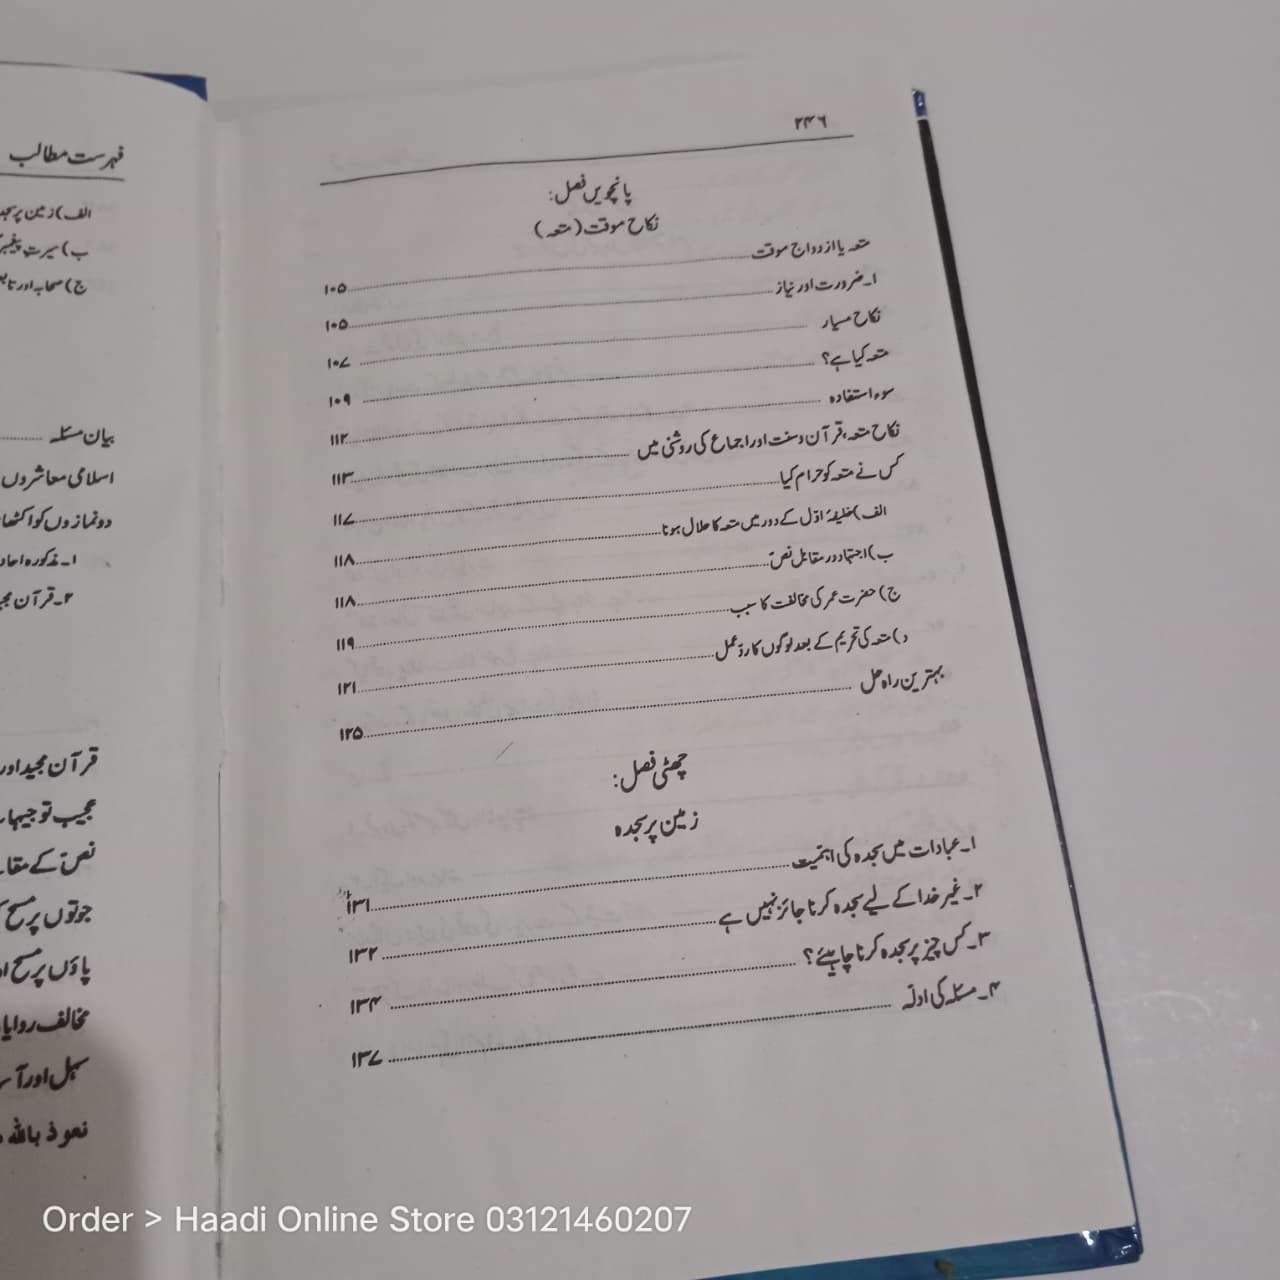 ۲۴۶
پانچویں فصل:
نکاح موقت (متعہ)
متعہ یا ازدواج موقت ۱۰۵
۱۔ ضرورت اور نیاز ۱۰۵
نکاح مسیار ۱۰۷
متعہ کیا ہے؟ ۱۰۹
سوء استفادہ ۱۱۲
نکاح متعہ، قرآن و سنت اور اجماع کی روشنی میں ۱۱۳
کس نے متعہ کو حرام کیا ۱۱۷
الف) خلیفۂ اوّل کے دور میں متعہ کا حلال ہونا ۱۱۸
ب) اجتہاد در مقابل نصّ ۱۱۸
ج) حضرت عمر کی مخالفت کا سبب ۱۱۹
د) متعہ کی تحریم کے بعد لوگوں کا ردّ عمل ۱۲۱
بہترین راہ حل ۱۲۵
چھٹی فصل:
زمین پر سجدہ
۱۔ عبادات میں سجدہ کی اہمّیت ۱۳۱
۲۔ غیر خدا کے لیے سجدہ کرنا جائز نہیں ہے ۱۳۲
۳۔ کس چیز پر سجدہ کرنا چاہیئے؟ ۱۳۴
۴۔ مسئلہ کی ادلّہ ۱۳۷
فہرست مطالب
الف) زمین پر سجد
ب) سیرت پیغمبر
ج) صحابہ اور تابع
بیان مسئلہ
اسلامی معاشروں
دو نمازوں کو اکٹھا
۱۔ مذکورہ احاد
۲۔ قرآن مجی
قرآن مجید اور
عجیب توجیہات
نصّ کے مقا
جوتوں پر مسح
پاؤں پر مسح او
مخالف روایا
سہل اور آس
نعوذ باللہ
Order > Haadi Online Store 03121460207